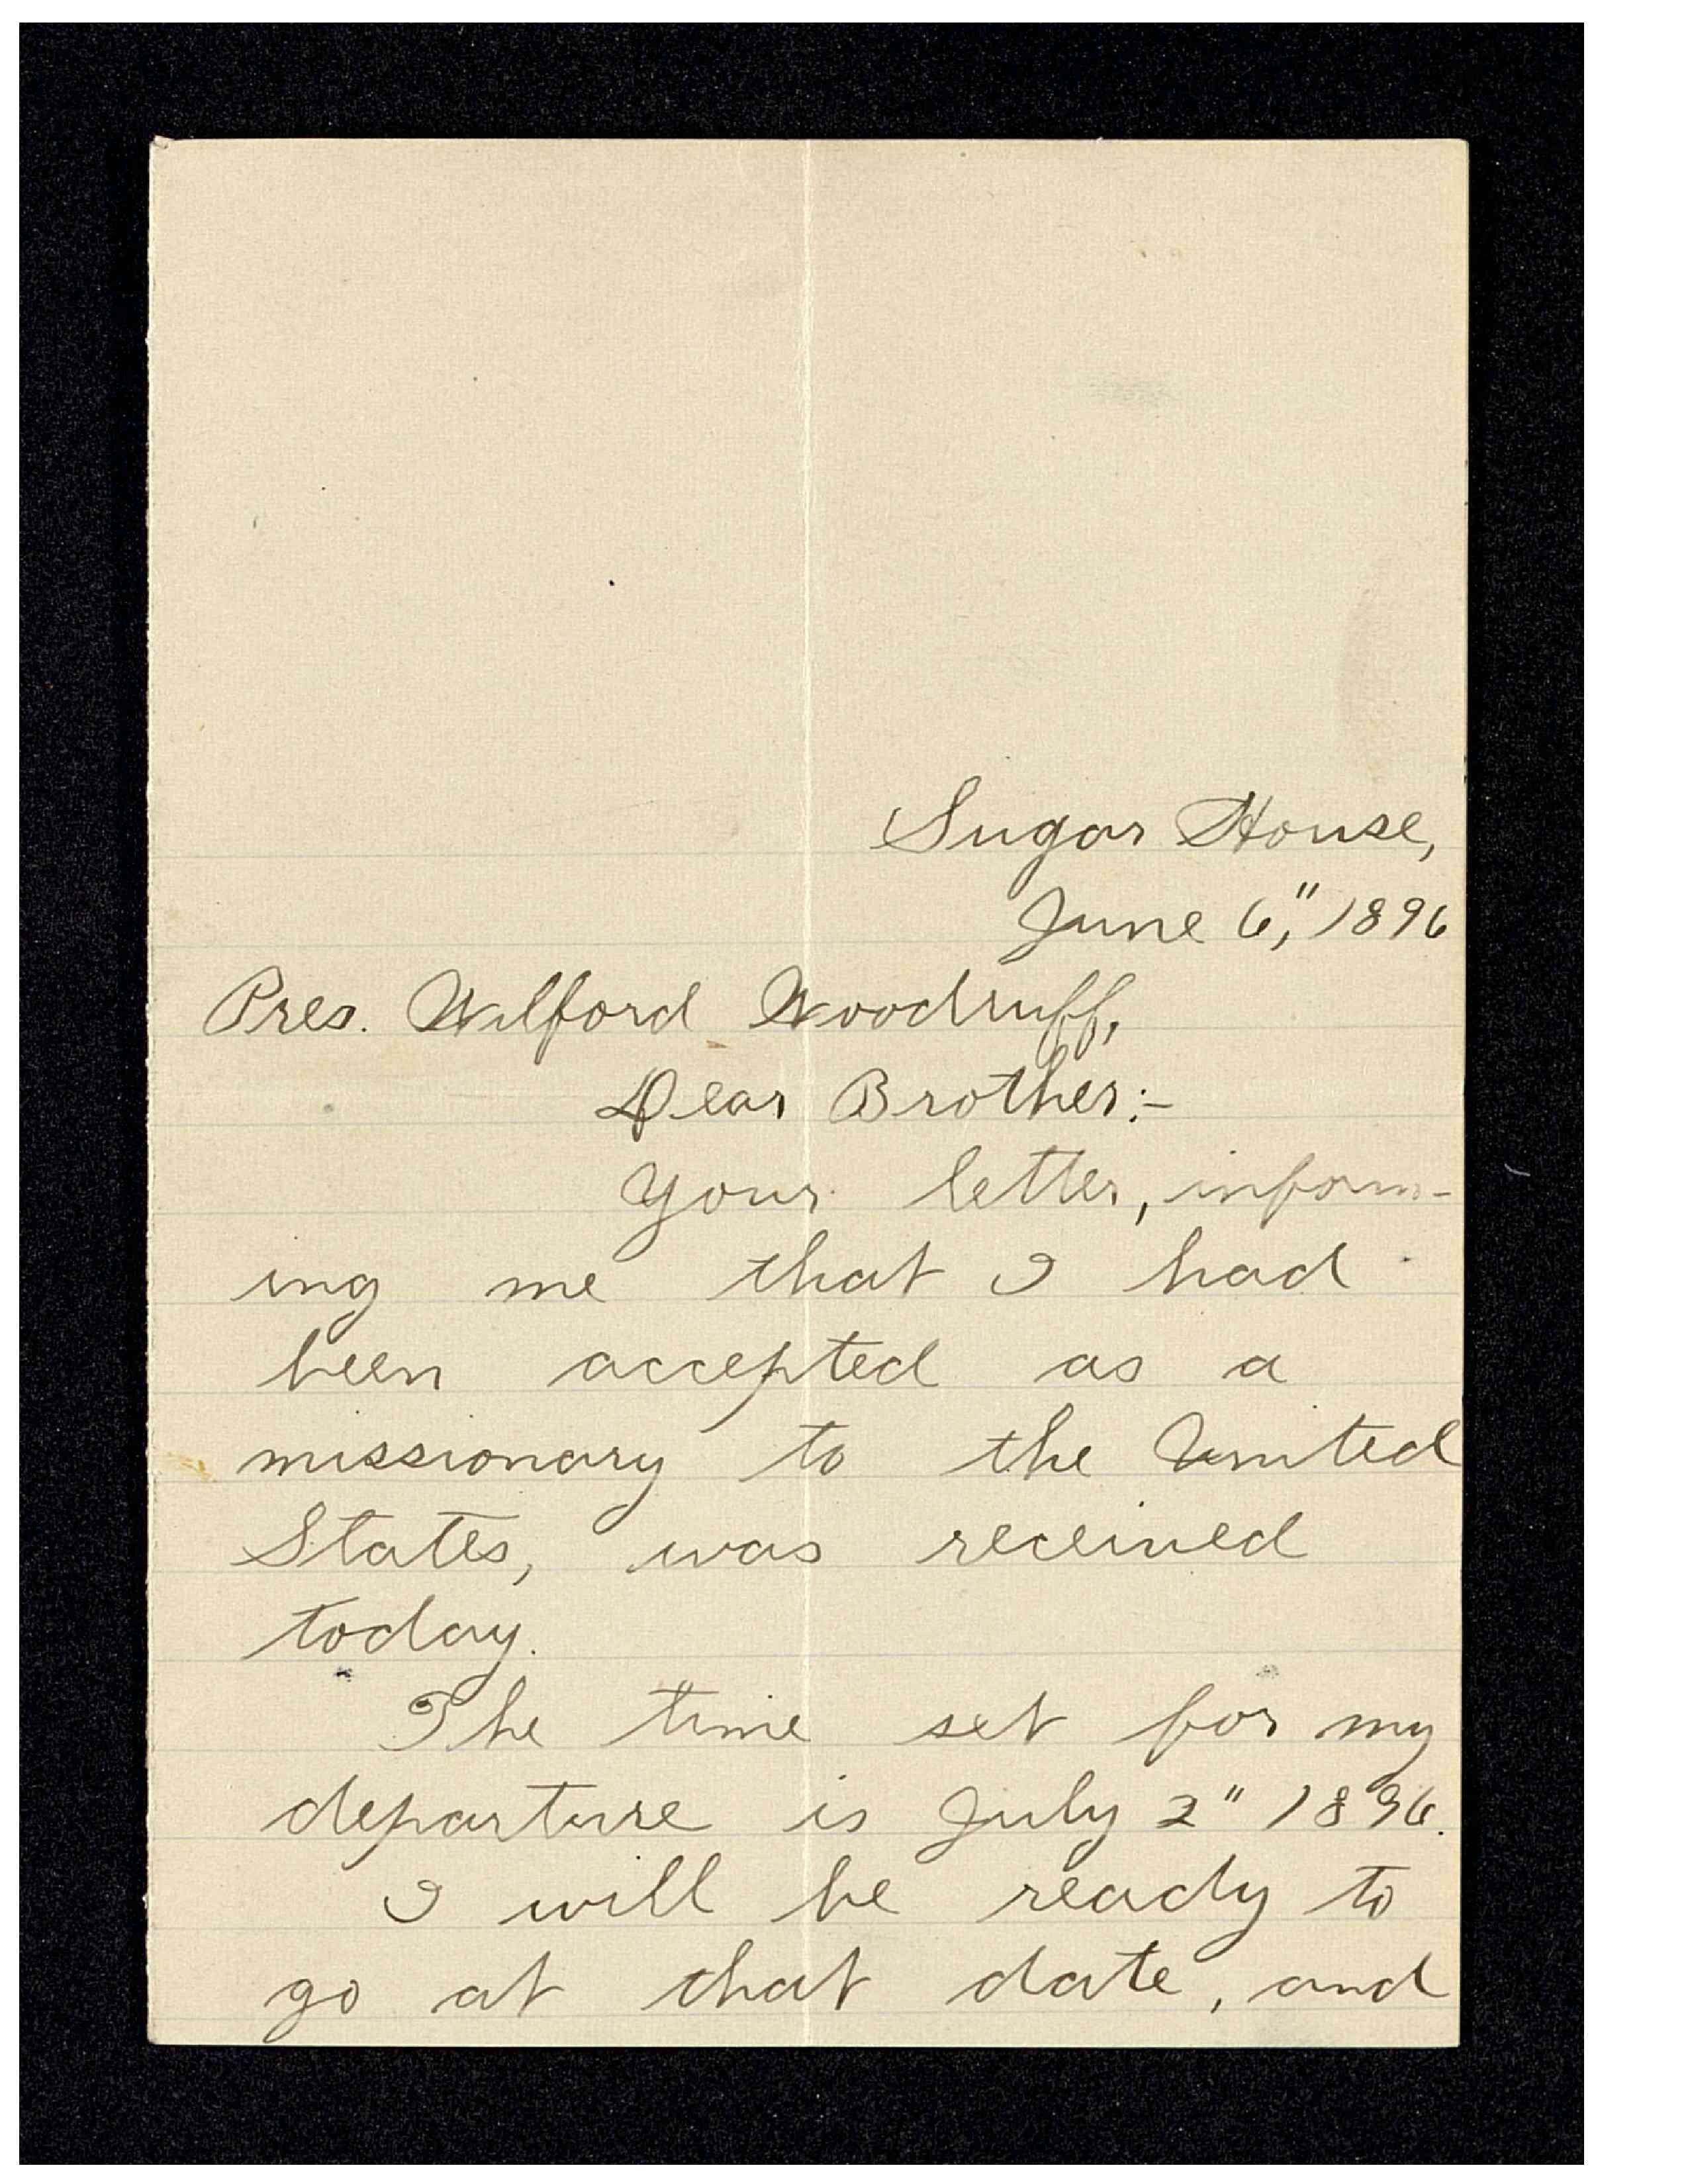 Sugar House,
June 6,", 1896
Pres. Wilford Woodruff,
Dear Brother:-
Your letter, inform-
ing me that I had
been accepted as a
missionary to the United
States, was received
today.
The time set for my
departure is July 2" 1896.
I will be ready to
go at that date, and